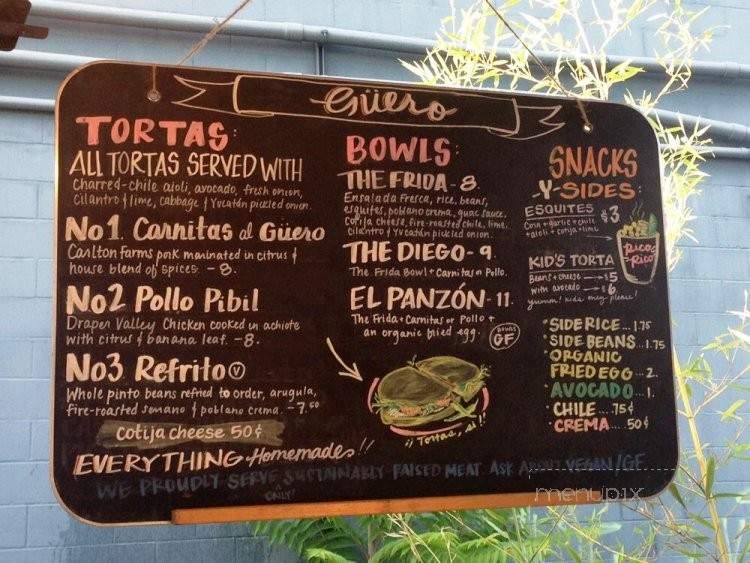 Güero
TORTAS:
ALL TORTAS SERVED WITH
Charred-chile aioli, avocado, fresh onion,
Cilantro & lime, cabbage & Yucatán pickled onion.
No1. Carnitas al Güero
Carlton Farms pork marinated in citrus &
house blend of spices. -8.
No2 Pollo Pibil
Draper Valley Chicken cooked in achiote
with citrus & banana leaf. -8.
No3 Refrito V
Whole pinto beans refried to order, arugula,
fire-roasted serrano & poblano crema. -7.50
cotija cheese 50¢
EVERYTHING Homemades!!
WE PROUDLY SERVE SUSTAINABLY RAISED MEAT ASK ABOUT VEGAN/GF
ONLY!
BOWLS:
THE FRIDA-8.
Ensalada fresca, rice, beans,
esquites, poblano crema, guac sauce,
Cotija cheese, fire-roasted chile, lime,
cilantro & Yucatán pickled onion.
THE DIEGO-9.
The Frida Bowl + Carnitas or Pollo.
EL PANZÓN-11.
The Frida + Carnitas or Pollo +
an organic fried egg.
BOWLS
GF
¡¡Tortas, sí!!
SNACKS
-Y-SIDES:
ESQUITES $3
Corn + garlic + chile
+ aioli + cotija + lime
RICO
RICO
KID'S TORTA
Beans + cheese $5
with avocado $6
yumm! kids only please!
*SIDE RICE...1.75
*SIDE BEANS...1.75
*ORGANIC
FRIED EGG...2.
*AVOCADO...1.
*CHILE....75¢
*CREMA....50¢
menupix